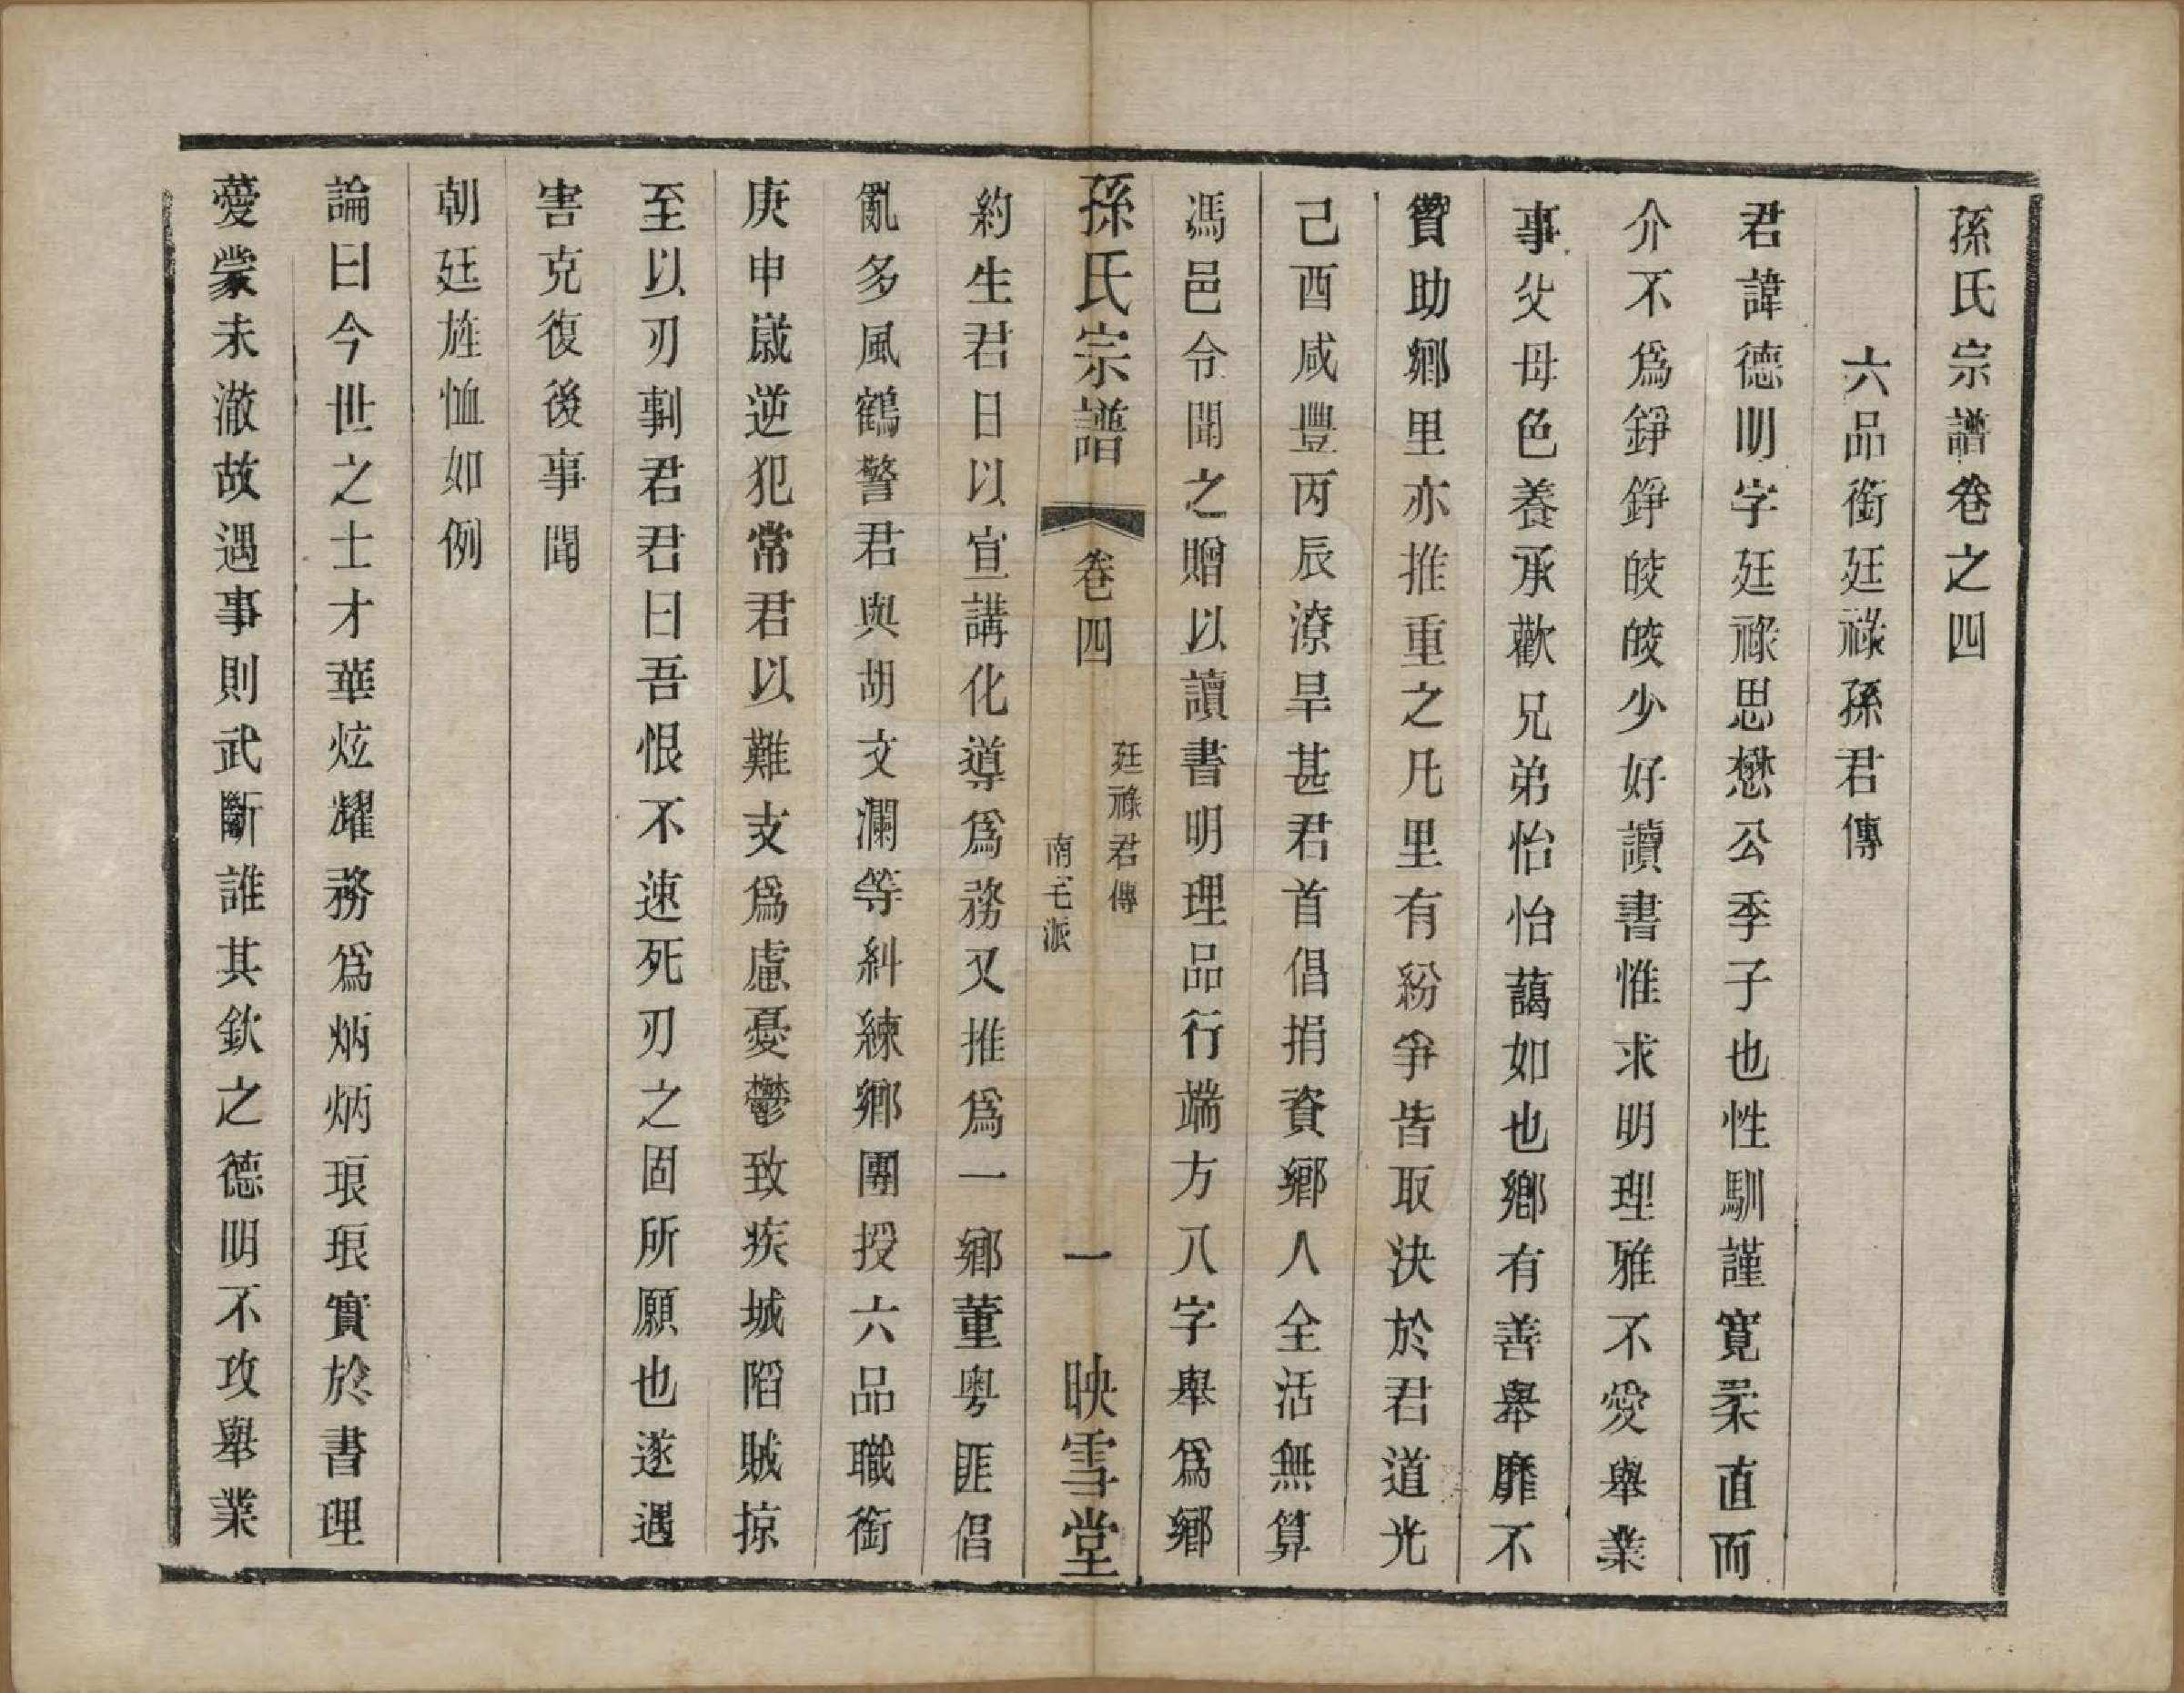 孫氏宗譜卷之四
六品銜廷祿孫君傳
君諱德明字廷祿思懋公季子也性馴謹寬柔直而
介不爲錚錚皎皎少好讀書惟求明理雅不愛舉業
事父母色養承歡兄弟怡怡藹如也鄉有善舉靡不
贊助鄉里亦推重之凡里有紛爭皆取決於君道光
己酉咸豐丙辰潦旱甚君首倡捐資鄉人全活無算
馮邑令聞之贈以讀書明理品行端方八字舉爲鄉
孫氏宗譜
卷四
廷祿君傳
南宅派
一
映雪堂
約生君日以宣講化導爲務又推爲一鄉董粵匪倡
亂多風鶴警君與胡文瀾等糾練鄉團授六品職銜
庚申嵗逆犯常君以難支爲慮憂鬱致疾城陷賊掠
至以刃剚君君曰吾恨不速死刃之固所願也遂遇
害克復後事聞
朝廷旌恤如例
論曰今世之士才華炫耀務爲炳炳琅琅實於書理
薆蒙未澈故遇事則武斷誰其欽之德明不攻舉業